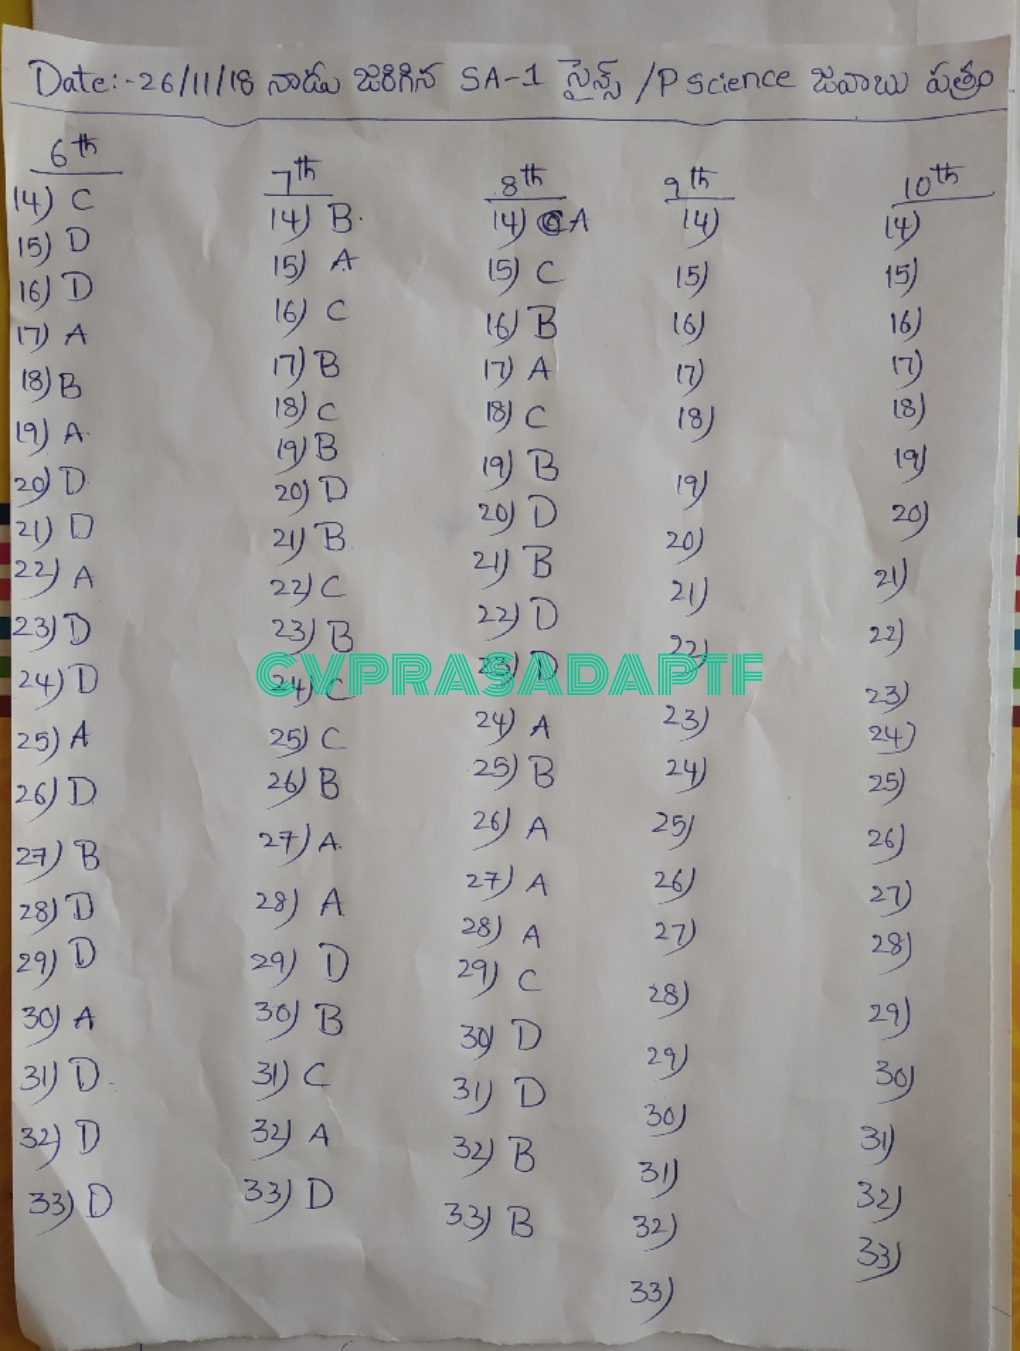 Date:-26/11/18 నాడు జరిగిన SA-1 సైన్స్ /P Science జవాబు పత్రం
6th
14) C
15) D
16) D
17) A
18) B
19) A
20) D
21) D
22) A
23) D
24) D
25) A
26) D
27) B
28) D
29) D
30) A
31) D
32) D
33) D
7th
14) B
15) A
16) C
17) B
18) C
19) B
20) D
21) B
22) C
23) B
24) C
25) C
26) B
27) A
28) A
29) D
30) B
31) C
32) A
33) D
8th
14) A
15) C
16) B
17) A
18) C
19) B
20) D
21) B
22) D
23) D
24) A
25) B
26) A
27) A
28) A
29) C
30) D
31) D
32) B
33) B
9th
14)
15)
16)
17)
18)
19)
20)
21)
22)
23)
24)
25)
26)
27)
28)
29)
30)
31)
32)
33)
10th
14)
15)
16)
17)
18)
19)
20)
21)
22)
23)
24)
25)
26)
27)
28)
29)
30)
31)
32)
33)
GVPRASADAPTF